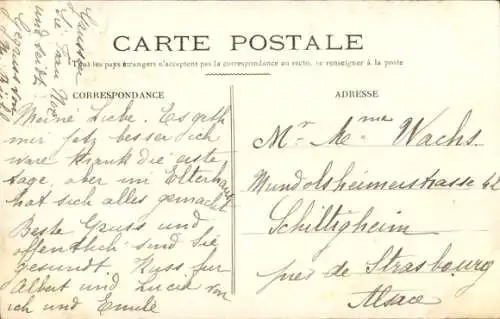 CARTE POSTALE
Tous les pays étrangers n'acceptent pas la correspondance au recto, se renseigner à la poste
CORRESPONDANCE
Meine Liebe. Es geht
mir jetz besser ich
ware krank die erste
tage, aber im Elternhaus
hat sich alles gemacht
Beste Gruss und
offentlich sind Sie
gesundt. Kuss fur
Albert und Lucie von
ich und Emile
Grüssen
Sie Frau
und seidt
ADRESSE
Mr. Mme Wachs.
Mundolsheimerstrasse
Schiltigheim
près de Strasbourg
Alsace